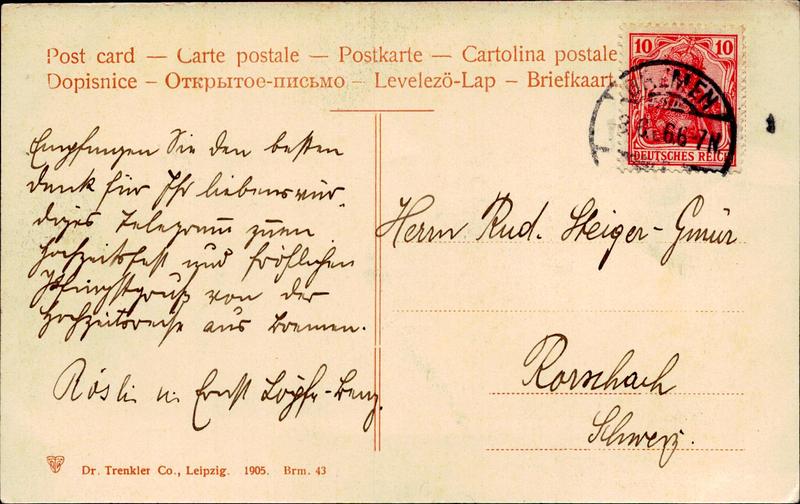 Post card — Carte postale — Postkarte — Cartolina postale
Dopisnice – Открытое-письмо – Levelezö-Lap – Briefkaart
10 10
BREMEN
6-7N
DEUTSCHES REICH
Empfangen Sie den besten
Dank für Ihr liebenswür-
diges Telegramm zum
Hochzeitsfest und fröhlichen
Pfingstgruß von der
Hochzeitsreise aus Bremen.
Rösli u. Ernst Löpfe-Benz.
Herrn Rud. Steiger-Gmür
Rorschach
Schweiz.
Dr. Trenkler Co., Leipzig. 1905. Brm. 43